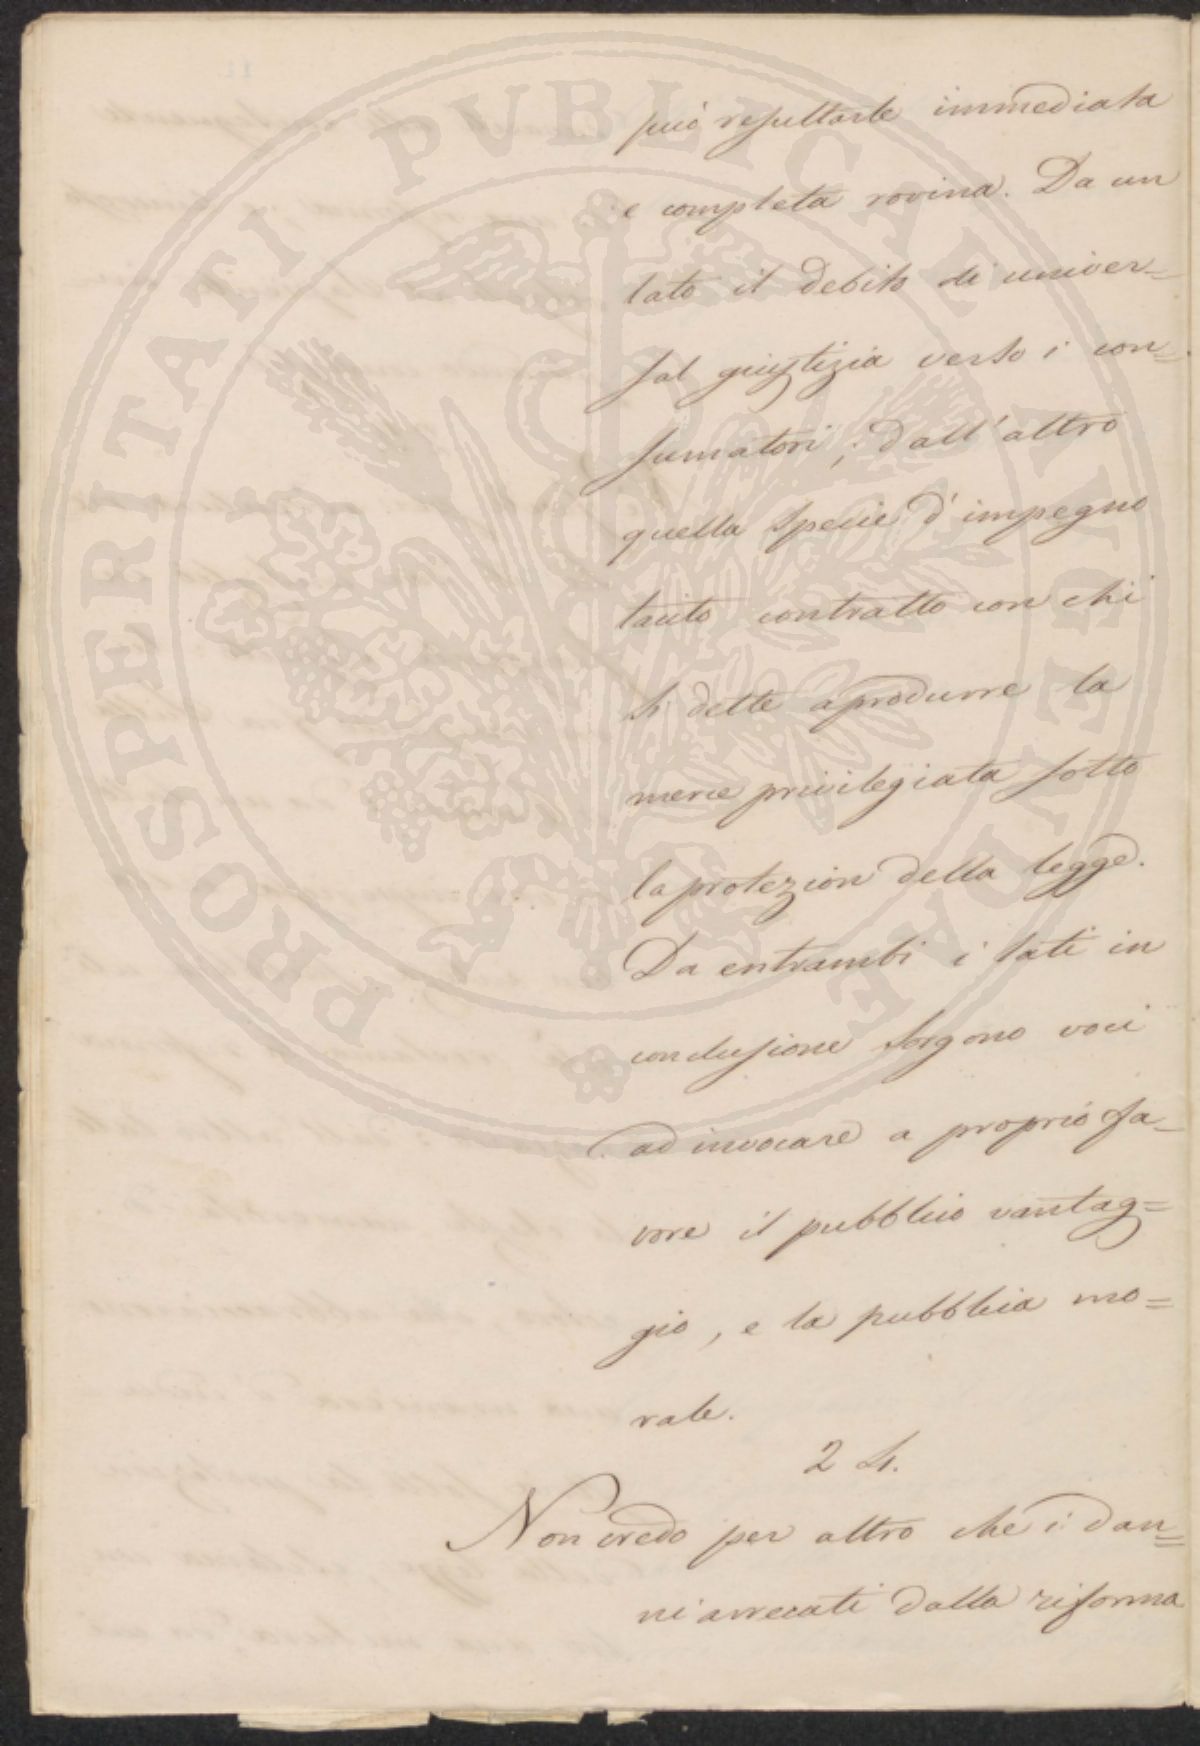 può resultarle immediata
e completa rovina. Da un
lato il debito di univer=
sal giustizia verso i con=
sumatori; dall'altro
quella specie d'impegno
tacito contratto con chi
si dette a produrre la
merce privilegiata sotto
la protezion della legge.
Da entrambi i lati in
conclusione sorgono voci
ad invocare a proprio fa=
vore il pubblico vantag=
gio, e la pubblica mo=
rale.
2
Non credo per altro che i dan=
ni arrecati dalla riforma
PROSPERITATI PUBLICAE AUGENDAE